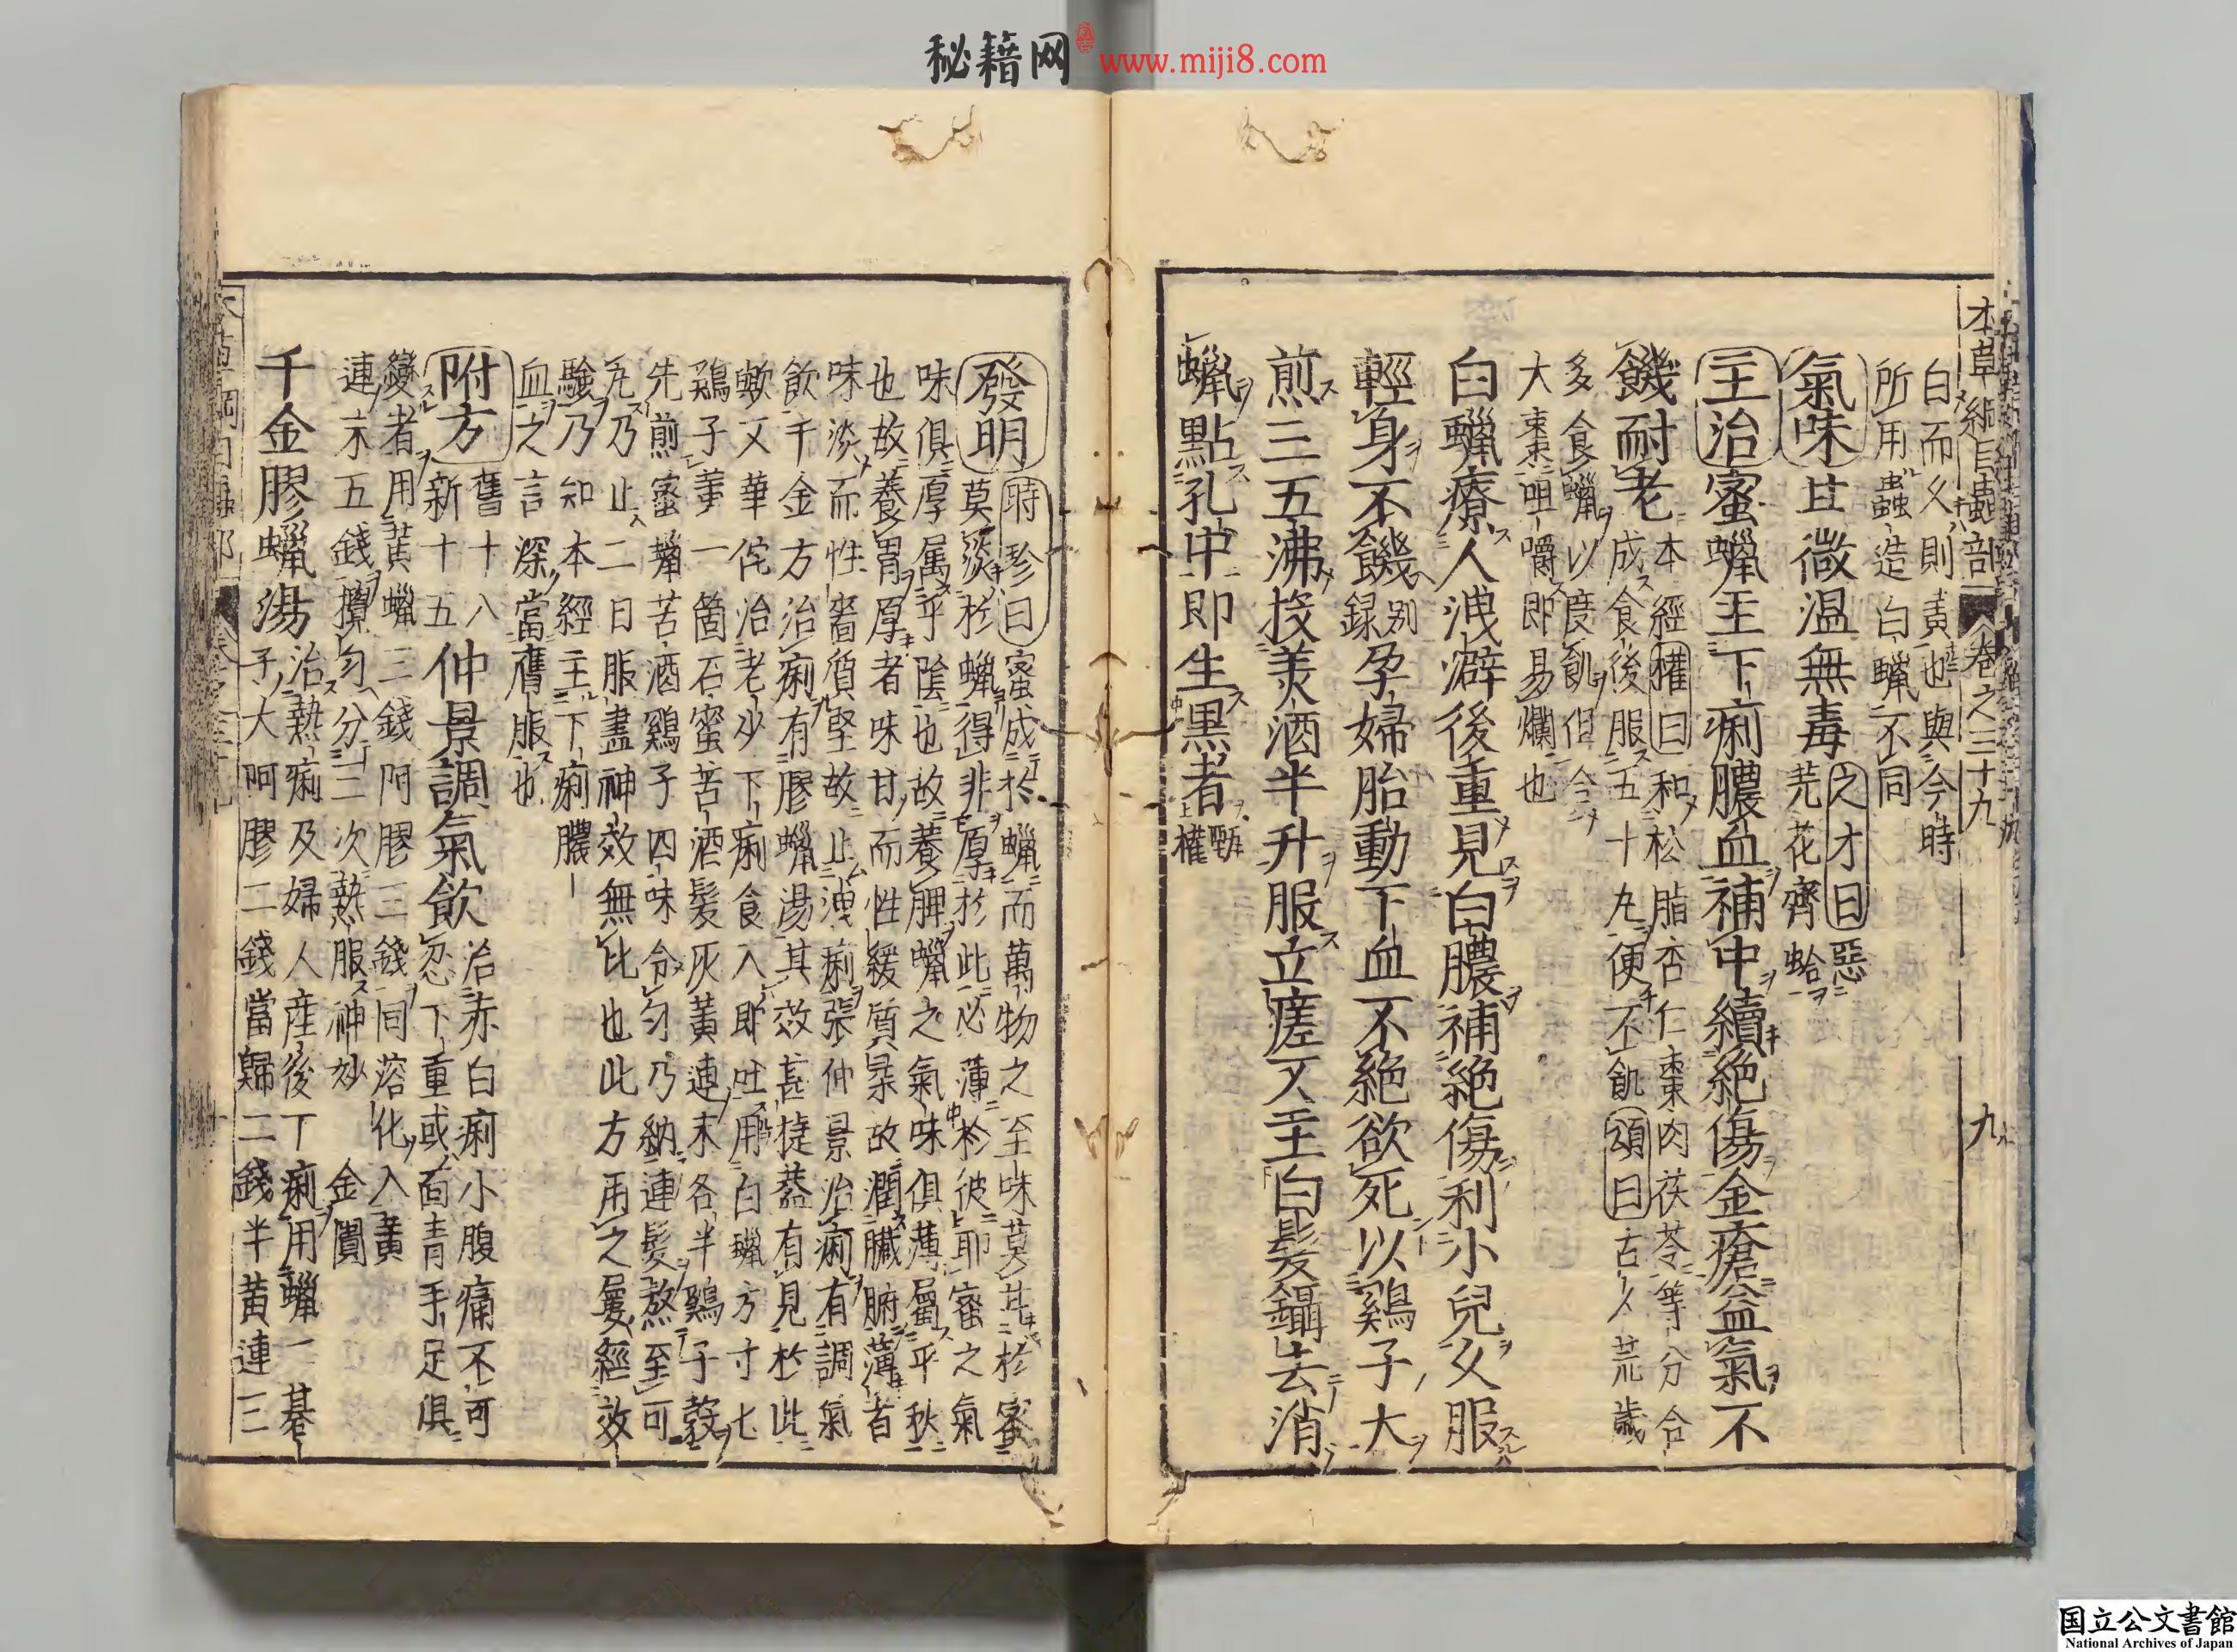 秘籍网 www.miji8.com
本草綱目蟲部 卷之三十九 九
白而久則黃也與今時
所用蟲造白蠟不同
氣味甘微温無毒之才曰惡
芫花齊蛤
主治蜜蠟主下痢膿血補中續絶傷金瘡益氣不
饑耐老本經權曰和松脂杏仁棗肉茯苓等分合
成食後服五十丸便不飢頌曰古人荒歳
多食蠟以度飢但合
大棗咀嚼即易爛也
白蠟療人洩澼後重見白膿補絶傷利小兒久服
輕身不饑别録孕婦胎動下血不絶欲死以鷄子大
煎三五沸投美酒半升服立瘥又主白髮鑷去消
蠟點孔中即生黒者甄權
發明時珍曰蜜成於蠟而萬物之至味莫甘於蜜
莫淡於蠟得非厚於此必薄於彼耶蜜之氣
味俱厚属乎陰也故養脾蠟之氣味俱薄屬乎秋
也故養胃厚者味甘而性緩質柔故潤臟腑薄者
味淡而性嗇質堅故止洩痢張仲景治痢有調氣
飲千金方治痢有膠蠟湯其效甚捷蓋有見於此
歟又華佗治老少下痢食入即吐用白蠟方寸七
鷄子黄一箇石蜜苦酒髪灰黄連末各半鷄子殻
先煎蜜蠟苦酒鷄子四味令匀乃納連髮熬至可
丸乃止二日服盡神效無比也此方用之屢經效
驗乃知本經主下痢膿
血之言深當膺服也
附方舊十八新十五仲景調氣飲治赤白痢小腹痛不可
忍下重或面青手足俱
變者用黄蠟三錢阿膠三錢同溶化入黄
連末五錢攪匀分三次熱服神妙 金匱
千金膠蠟湯治熱痢及婦人産後下痢用蠟二碁
子大阿膠二錢當歸二錢半黄連三
国立公文書館
National Archives of Japan